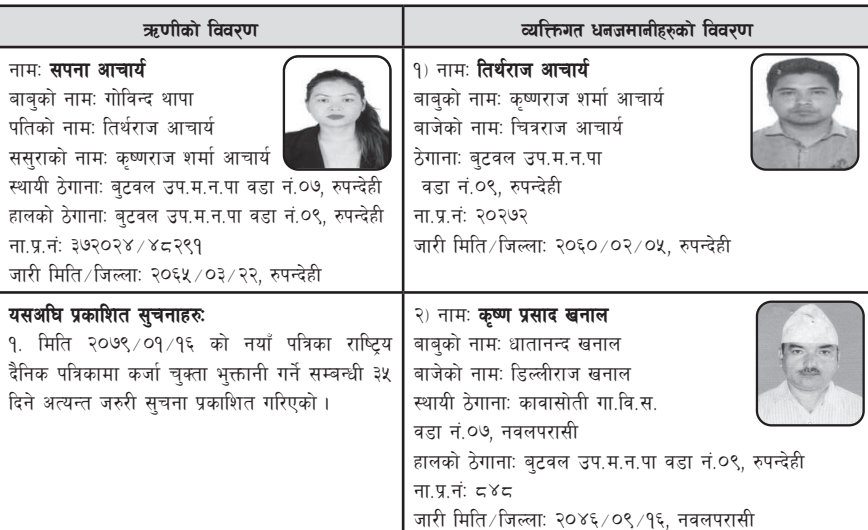 ऋणीको विवरण
व्यक्तिगत धनजमानीहरुको विवरण
नामः सपना आचार्य
बाबुको नामः गोविन्द थापा
पतिको नामः तिर्थराज आचार्य
ससुराको नामः कृष्णराज शर्मा आचार्य
स्थायी ठेगानाः बुटवल उप.म.न.पा वडा नं.०७, रुपन्देही
हालको ठेगानाः बुटवल उप.म.न.पा वडा नं.०९, रुपन्देही
ना.प्र.नंः ३७२०२४/४८२९१
जारी मिति/जिल्लाः २०६५/०३/२२, रुपन्देही
१) नामः तिर्थराज आचार्य
बाबुको नामः कृष्णराज शर्मा आचार्य
बाजेको नामः चित्रराज आचार्य
ठेगानाः बुटवल उप.म.न.पा
वडा नं.०९, रुपन्देही
ना.प्र.नंः २०२७२
जारी मिति/जिल्लाः २०६०/०२/०५, रुपन्देही
यसअघि प्रकाशित सुचनाहरुः
१. मिति २०७९/०१/१६ को नयाँ पत्रिका राष्ट्रिय
दैनिक पत्रिकामा कर्जा चुक्ता भुक्तानी गर्ने सम्बन्धी ३५
दिने अत्यन्त जरुरी सुचना प्रकाशित गरिएको ।
२) नामः कृष्ण प्रसाद खनाल
बाबुको नामः धातानन्द खनाल
बाजेको नामः डिल्लीराज खनाल
स्थायी ठेगानाः कावासोती गा.वि.स.
वडा नं.०७, नवलपरासी
हालको ठेगानाः बुटवल उप.म.न.पा वडा नं.०९, रुपन्देही
ना.प्र.नंः ८४८
जारी मिति/जिल्लाः २०४६/०९/१६, नवलपरासी